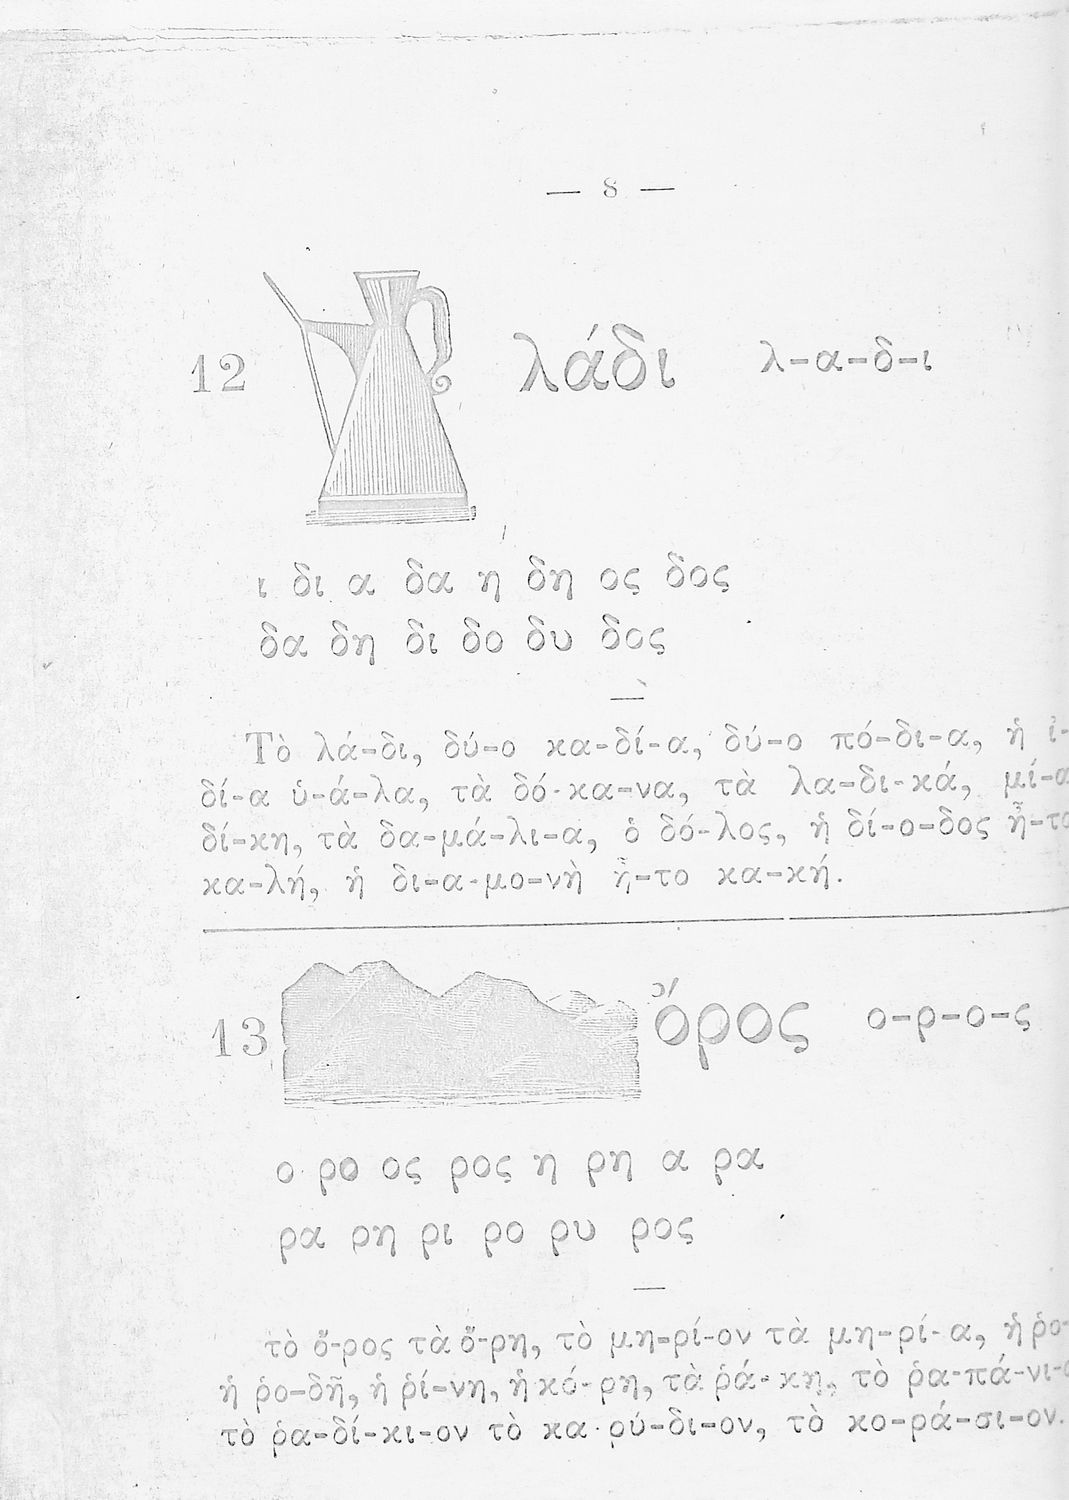 — 8 —
12 λάδι λ-α-δ-ι
ι δι α δα η δη ος δος
δα δη δι δο δυ δος
Τὸ λά-δι, δύ-ο κα-δί-α, δύ-ο πό-δι-α, ἡ ἰ-
δί-α ὑ-ά-λα, τὰ δό-κα-να, τὰ λα-δι-κά, μί-α
δί-κη, τὰ δα-μά-λι-α, ὁ δό-λος, ἡ δί-ο-δος ἦ-το
κα-λή, ἡ δι-α-μο-νὴ ἦ-το κα-κή.
13 ὄρος ο-ρ-ο-ς
ο ρο ος ρος η ρη α ρα
ρα ρη ρι ρο ρυ ρος
τὸ ὄ-ρος τὰ ὄ-ρη, τὸ μη-ρί-ον τὰ μη-ρί-α, ἡ ῥο-
ἡ ῥο-δῆ, ἡ ῥί-νη, ἡ κό-ρη, τὰ ῥά-κη, τὸ ῥα-πά-νι-
τὸ ῥα-δί-κι-ον τὸ κα-ρύ-δι-ον, τὸ κο-ρά-σι-ον.